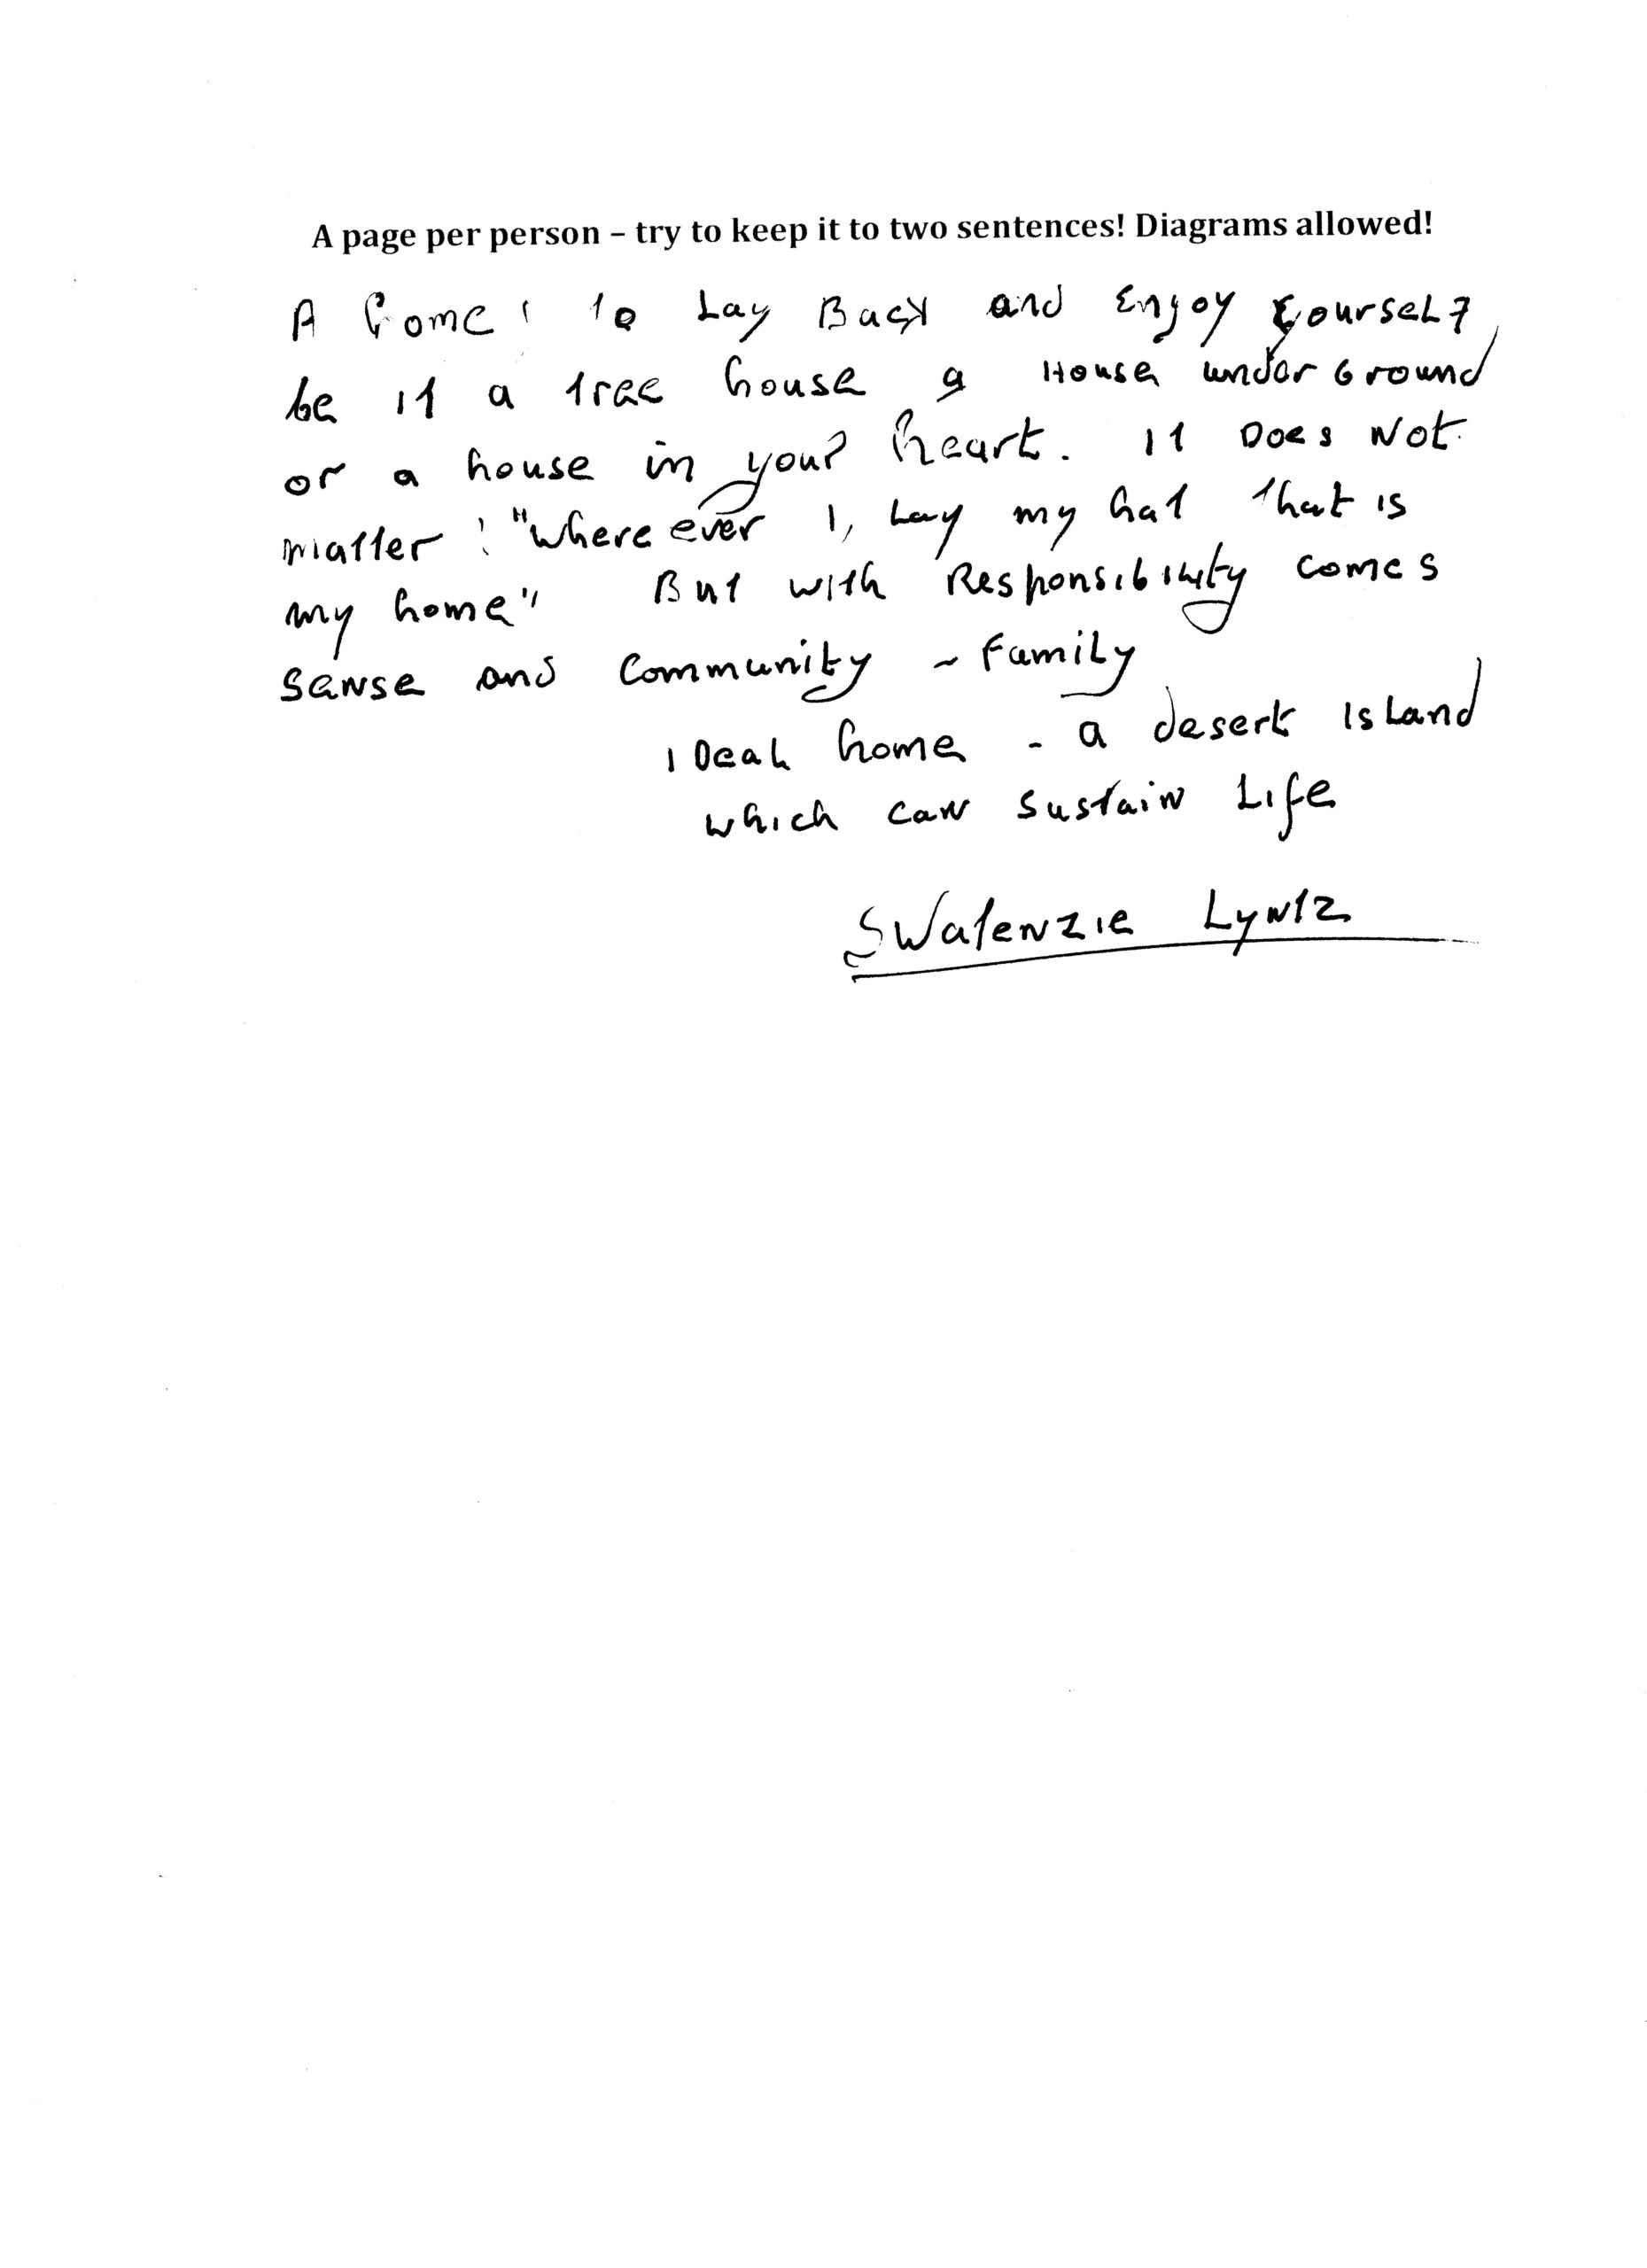 A page per person – try to keep it to two sentences! Diagrams allowed!
A home! to Lay Back and Enjoy yourself,
be it a tree house a House underGround
or a house in your heart. It Does Not
matter! "Where ever I, Lay my hat that is
my home" But with Responsibility comes
Sense and Community ~ Family
IDeaL home - a desert IsLand
which can sustain Life
SWatenzie Lyntz